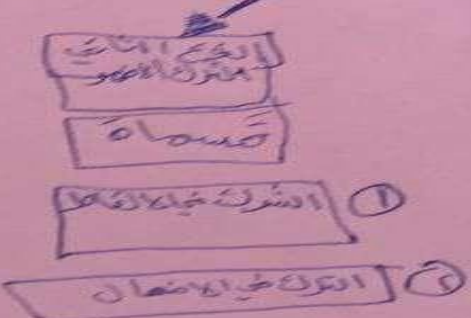 النوع الثاني
الشرك الاصغر
قسماه
الشرك في الالفاظ ①
الشرك في الافعال ②